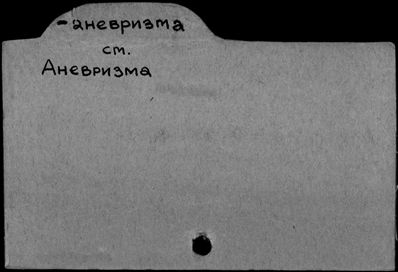 -аневризма
см.
Аневризма